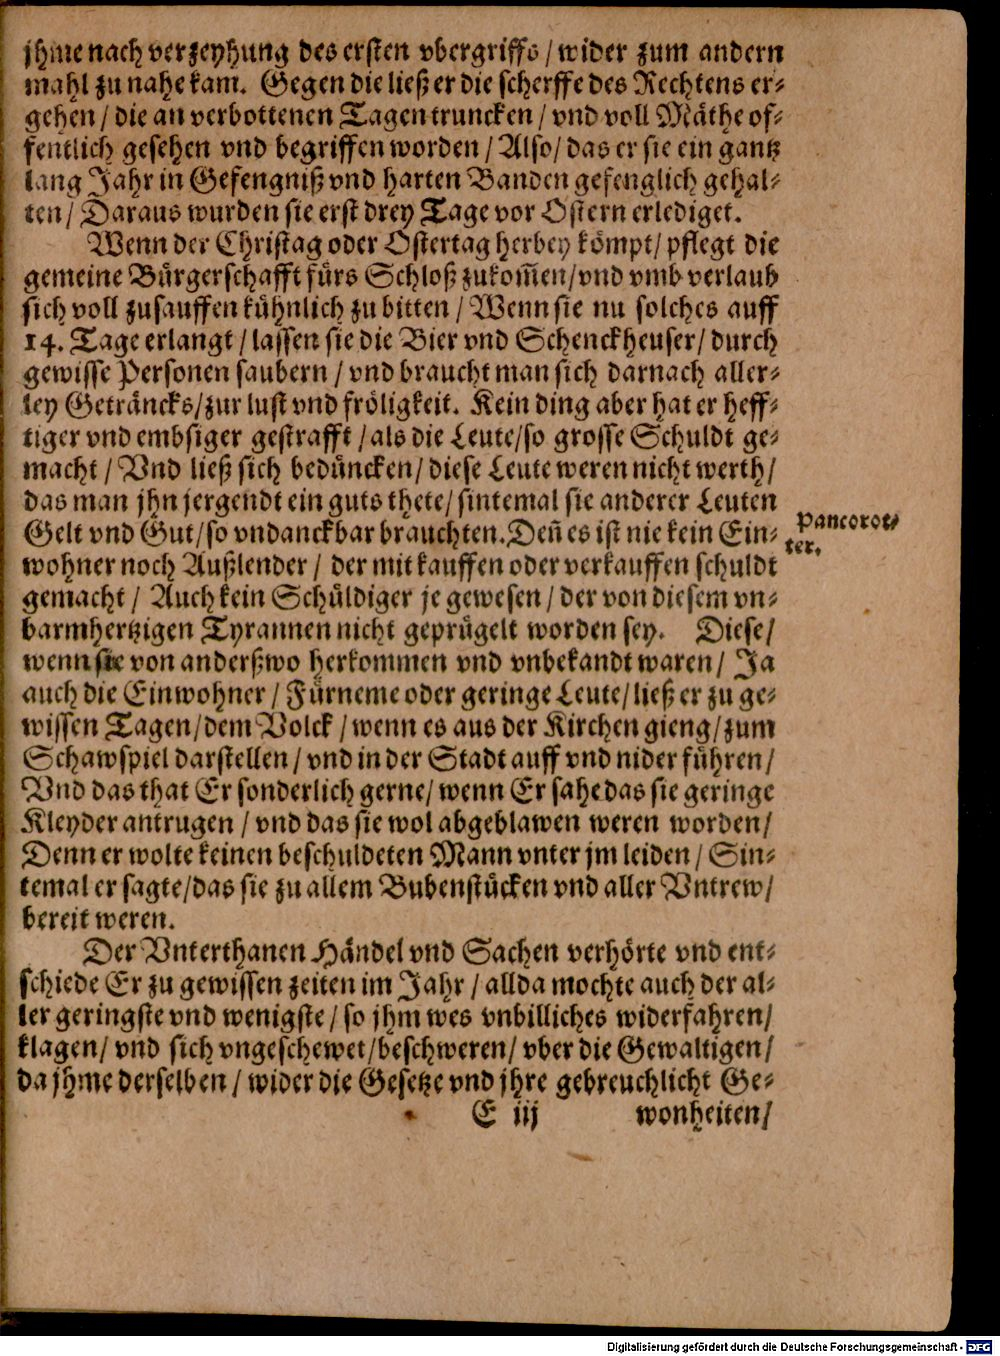 jhme nach verzeyhung des ersten vbergriffs / wider zum andern
mahl zu nahe kam. Gegen die ließ er die scherffe des Rechtens er⸗
gehen / die an verbottenen Tagen truncken / vnd voll Mäthe of⸗
fentlich gesehen vnd begriffen worden / Also / das er sie ein gantz
lang Jahr in Gefengniß vnd harten Banden gefenglich gehal⸗
ten / Daraus wurden sie erst drey Tage vor Ostern erlediget.
Wenn der Christag oder Ostertag herbey kömpt / pflegt die
gemeine Bürgerschafft fürs Schloß zukom̃en / vnd vmb verlaub
sich voll zusauffen kühnlich zu bitten / Wenn sie nu solches auff
14. Tage erlangt / lassen sie die Bier vnd Schenckheuser / durch
gewisse Personen saubern / vnd braucht man sich darnach aller⸗
ley Getråncks / zur lust vnd fröligkeit. Kein ding aber hat er heff⸗
tiger vnd embsiger gestrafft / als die Leute / so grosse Schuldt ge⸗
macht / Vnd ließ sich bedüncken / diese Leute weren nicht werth /
das man jhn jergendt ein guts thete / sintemal sie anderer Leuten
Gelt vnd Gut / so vndanckbar brauchten. Den̄ es ist nie kein Ein⸗
Pancorot⸗
ter.
wohner noch Außlender / der mit kauffen oder verkauffen schuldt
gemacht / Auch kein Schüldiger je gewesen / der von diesem vn⸗
barmhertzigen Tyrannen nicht geprügelt worden sey. Diese /
wenn sie von anderßwo herkommen vnd vnbekandt waren / Ja
auch die Einwohner / Fürneme oder geringe Leute / ließ er zu ge⸗
wissen Tagen / dem Volck / wenn es aus der Kirchen gieng / zum
Schawspiel darstellen / vnd in der Stadt auff vnd nider führen /
Vnd das that Er sonderlich gerne / wenn Er sahe das sie geringe
Kleyder antrugen / vnd das sie wol abgeblawen weren worden /
Denn er wolte keinen beschuldeten Mann vnter jm leiden / Sin⸗
temal er sagte / das sie zu allem Bubenstücken vnd aller Vntrew /
bereit weren.
Der Vnterthanen Håndel vnd Sachen verhörte vnd ent⸗
schiede Er zu gewissen zeiten im Jahr / allda mochte auch der al⸗
ler geringste vnd wenigste / so jhm wes vnbilliches widerfahren /
klagen / vnd sich vngeschewet / beschweren / vber die Gewaltigen /
da jhme derselben / wider die Gesetze vnd jhre gebreuchlicht Ge⸗
E iij wonheiten /
Digitalisierung gefördert durch die Deutsche Forschungsgemeinschaft - DFG